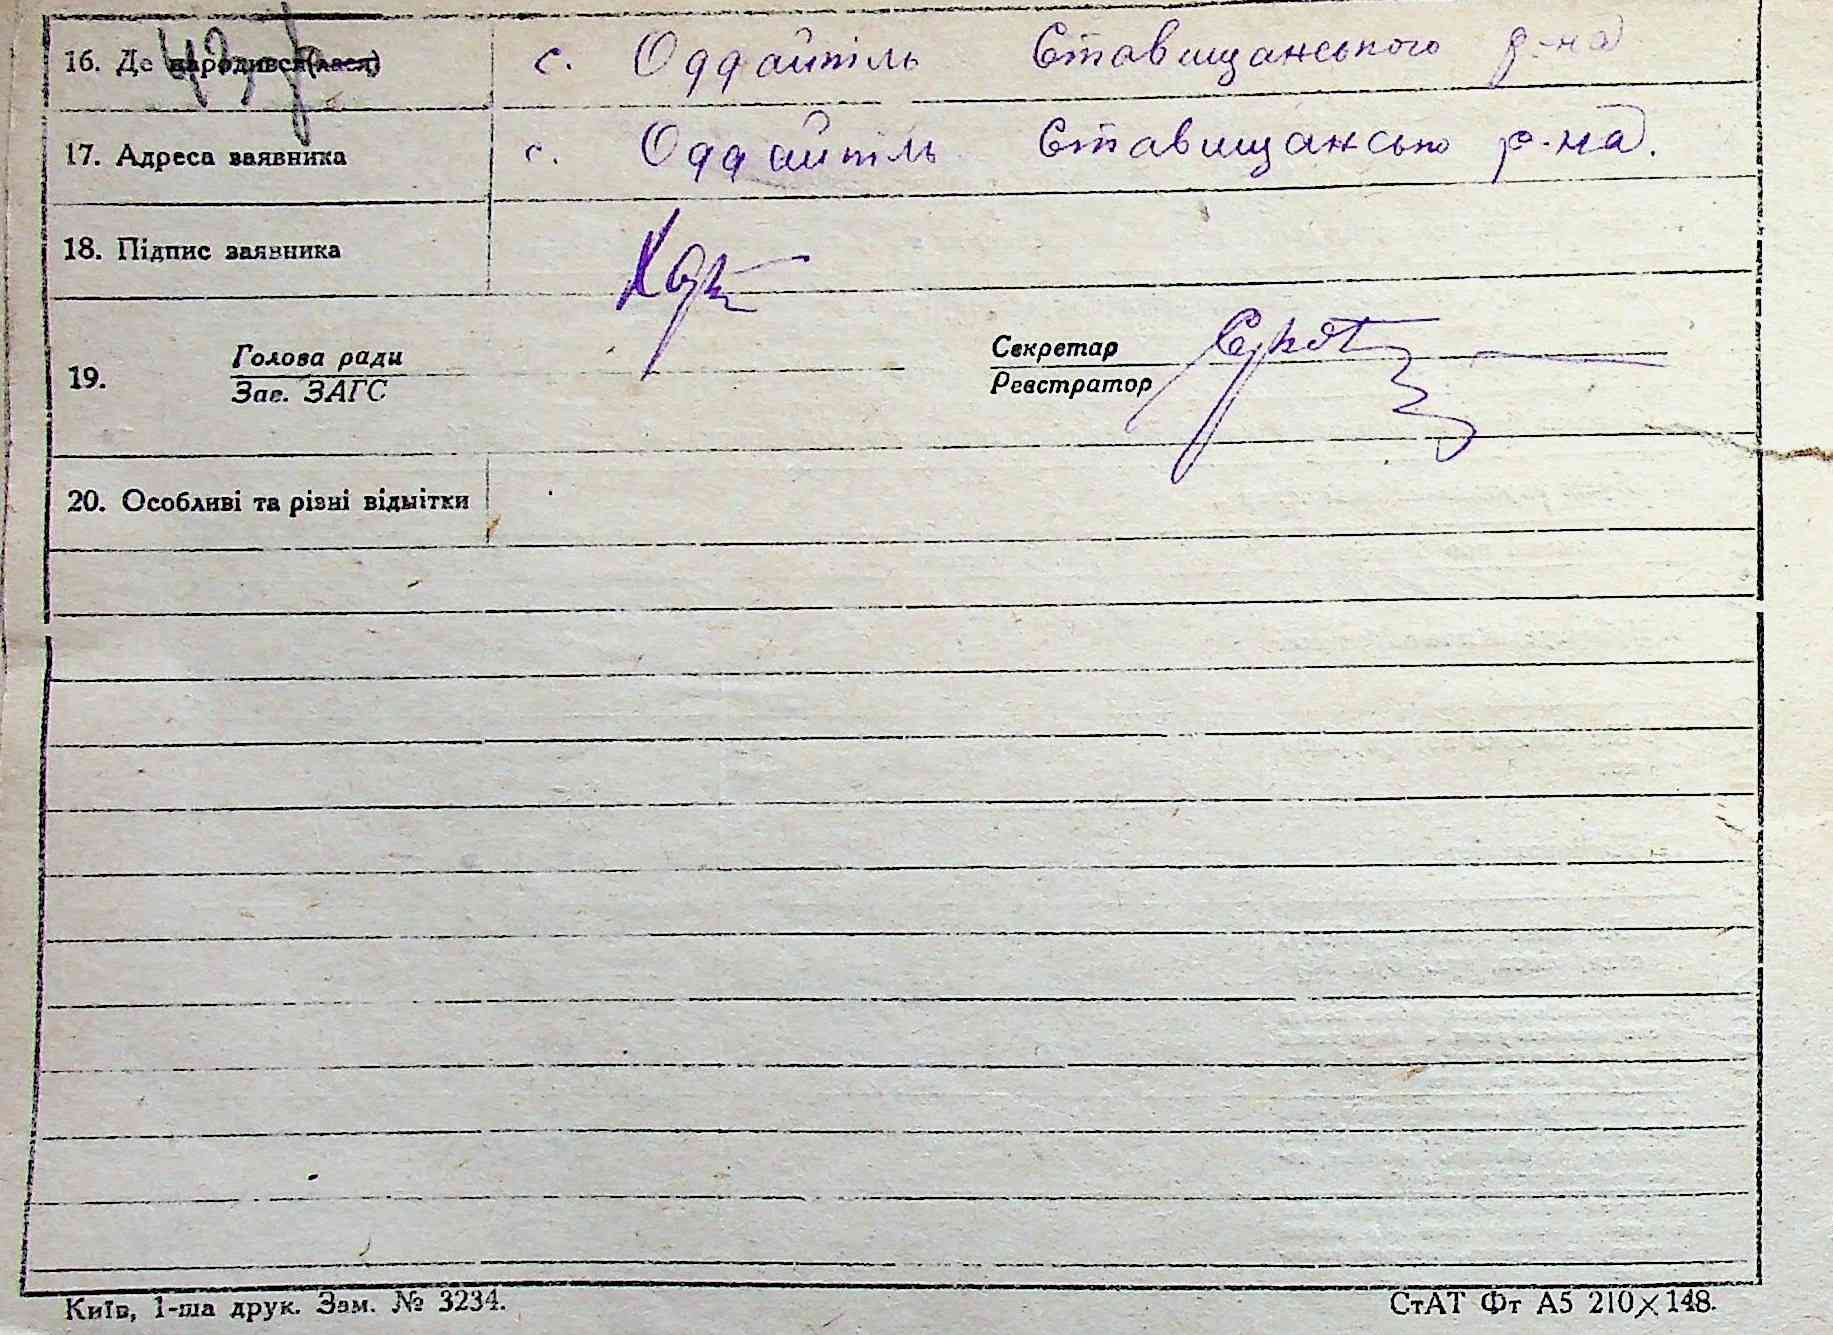 16. Де народився(лася) с. Оддайпіль Ставищанського р-на
17. Адреса заявника с. Оддайпіль Ставищансько р-на.
18. Підпис заявника
19. Голова ради Секретар
Зав. ЗАГС Реєстратор
20. Особливі та різні відмітки
Київ, 1-ша друк. Зам. № 3234. СтАТ Фт А5 210×148.